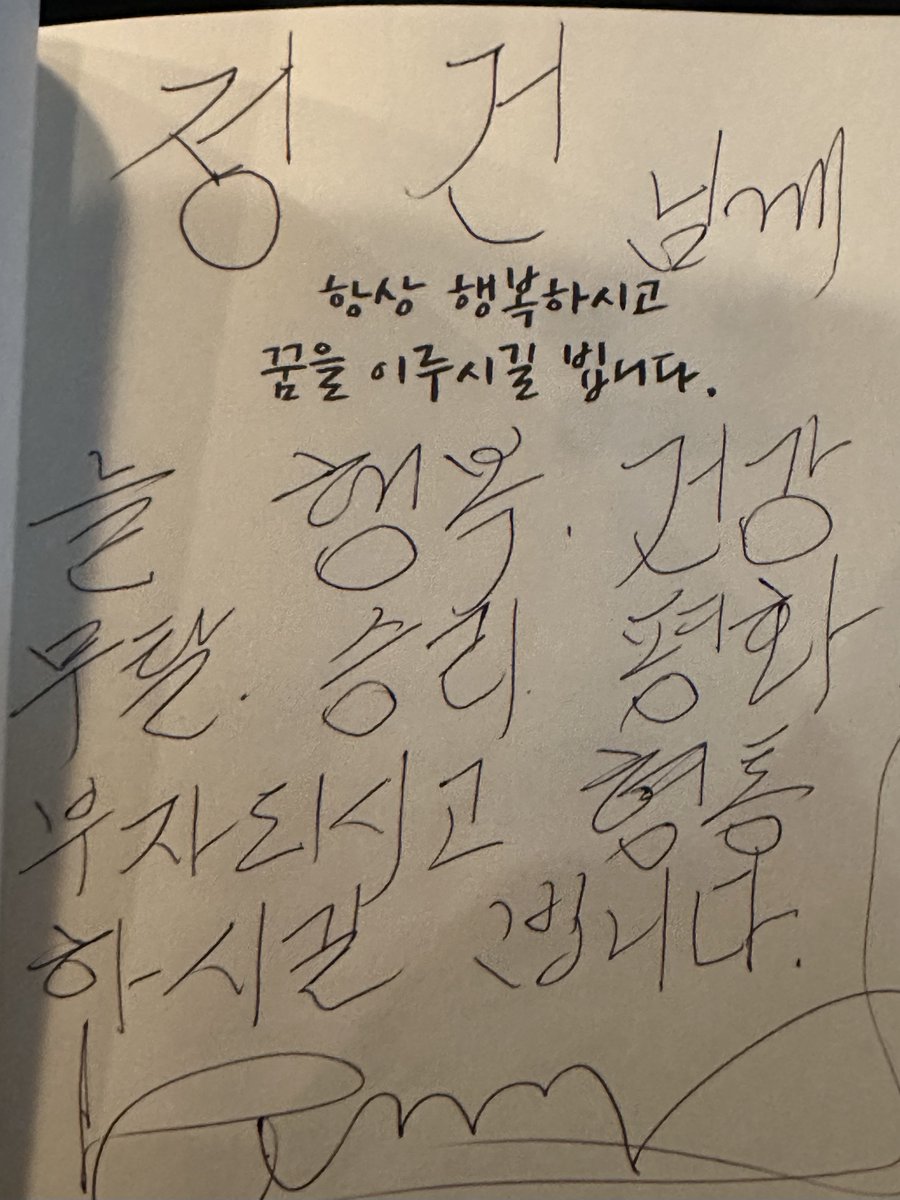 정 건 님께
항상 행복하시고
꿈을 이루시길 빕니다.
늘 행복. 건강
무탈. 승리. 평화
부자되시고 형통
하시길 빕니다.